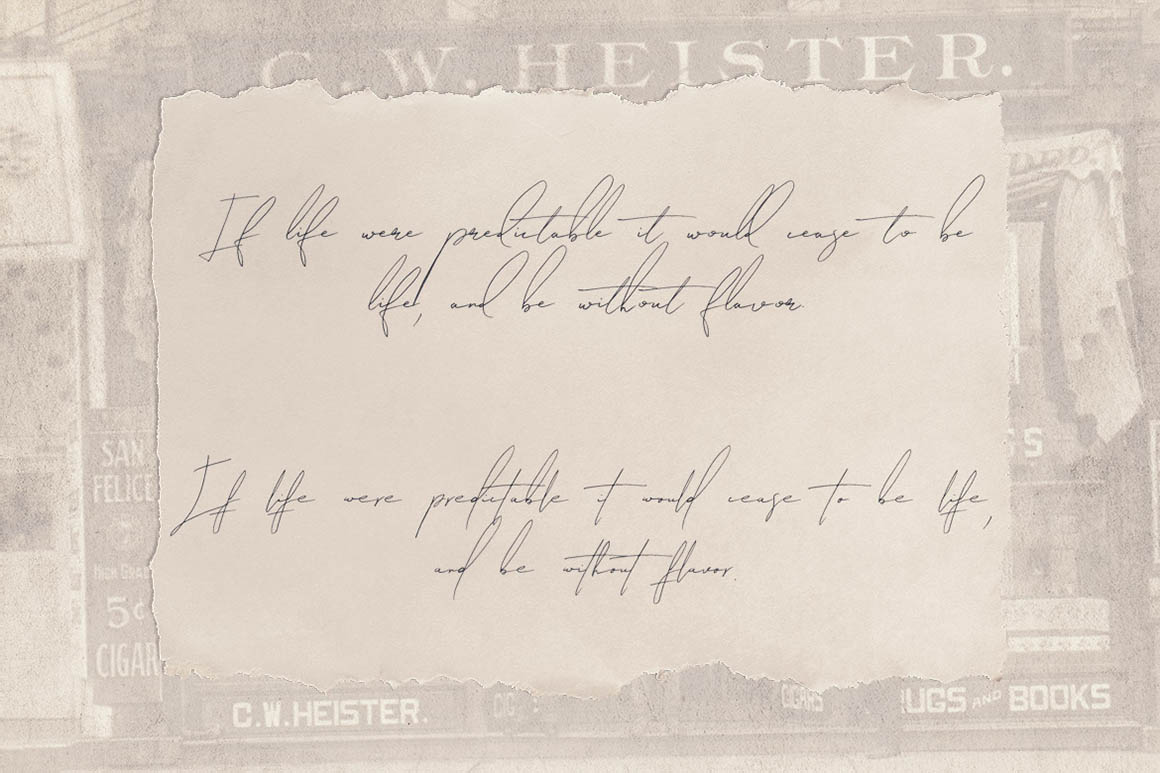 C.W. HEISTER.
If life were predictable it would cease to be
life, and be without flavor.
SAN
FELICE
If life were predictable it would cease to be life,
and be without flavor.
5c
CIGAR
C.W.HEISTER.
CIGARS
UGS AND BOOKS